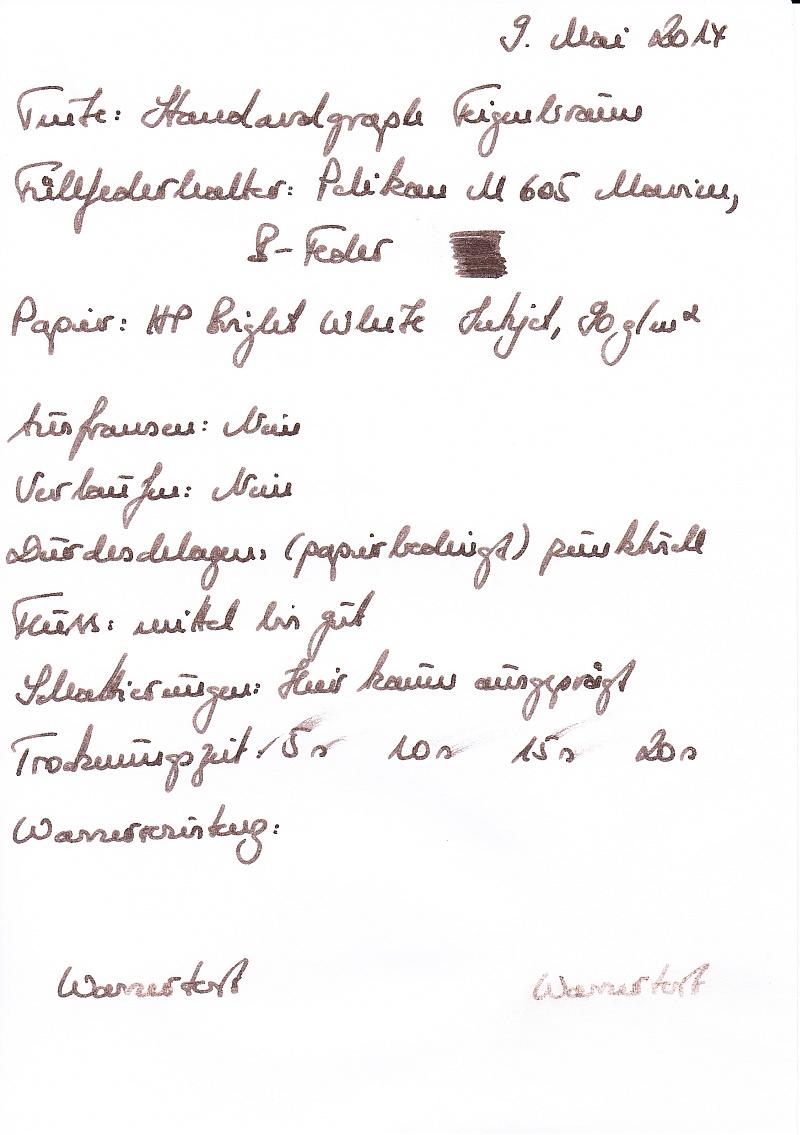 9. Mai 2014
Tinte: Standardgraph Feigenbraun
Füllfederhalter: Pelikan M 605 Marine,
B-Feder
Papier: HP Bright White Inkjet, 90 g/m²
Ausfransen: Nein
Verlaufen: Nein
Durchschlagen: (papierbedingt) punktuell
Fluss: mittel bis gut
Schattierungen: Hier kaum ausgeprägt
Trocknungszeit: 5s 10s 15s 20s
Wasserresistenz:
Wassertest Wassertest